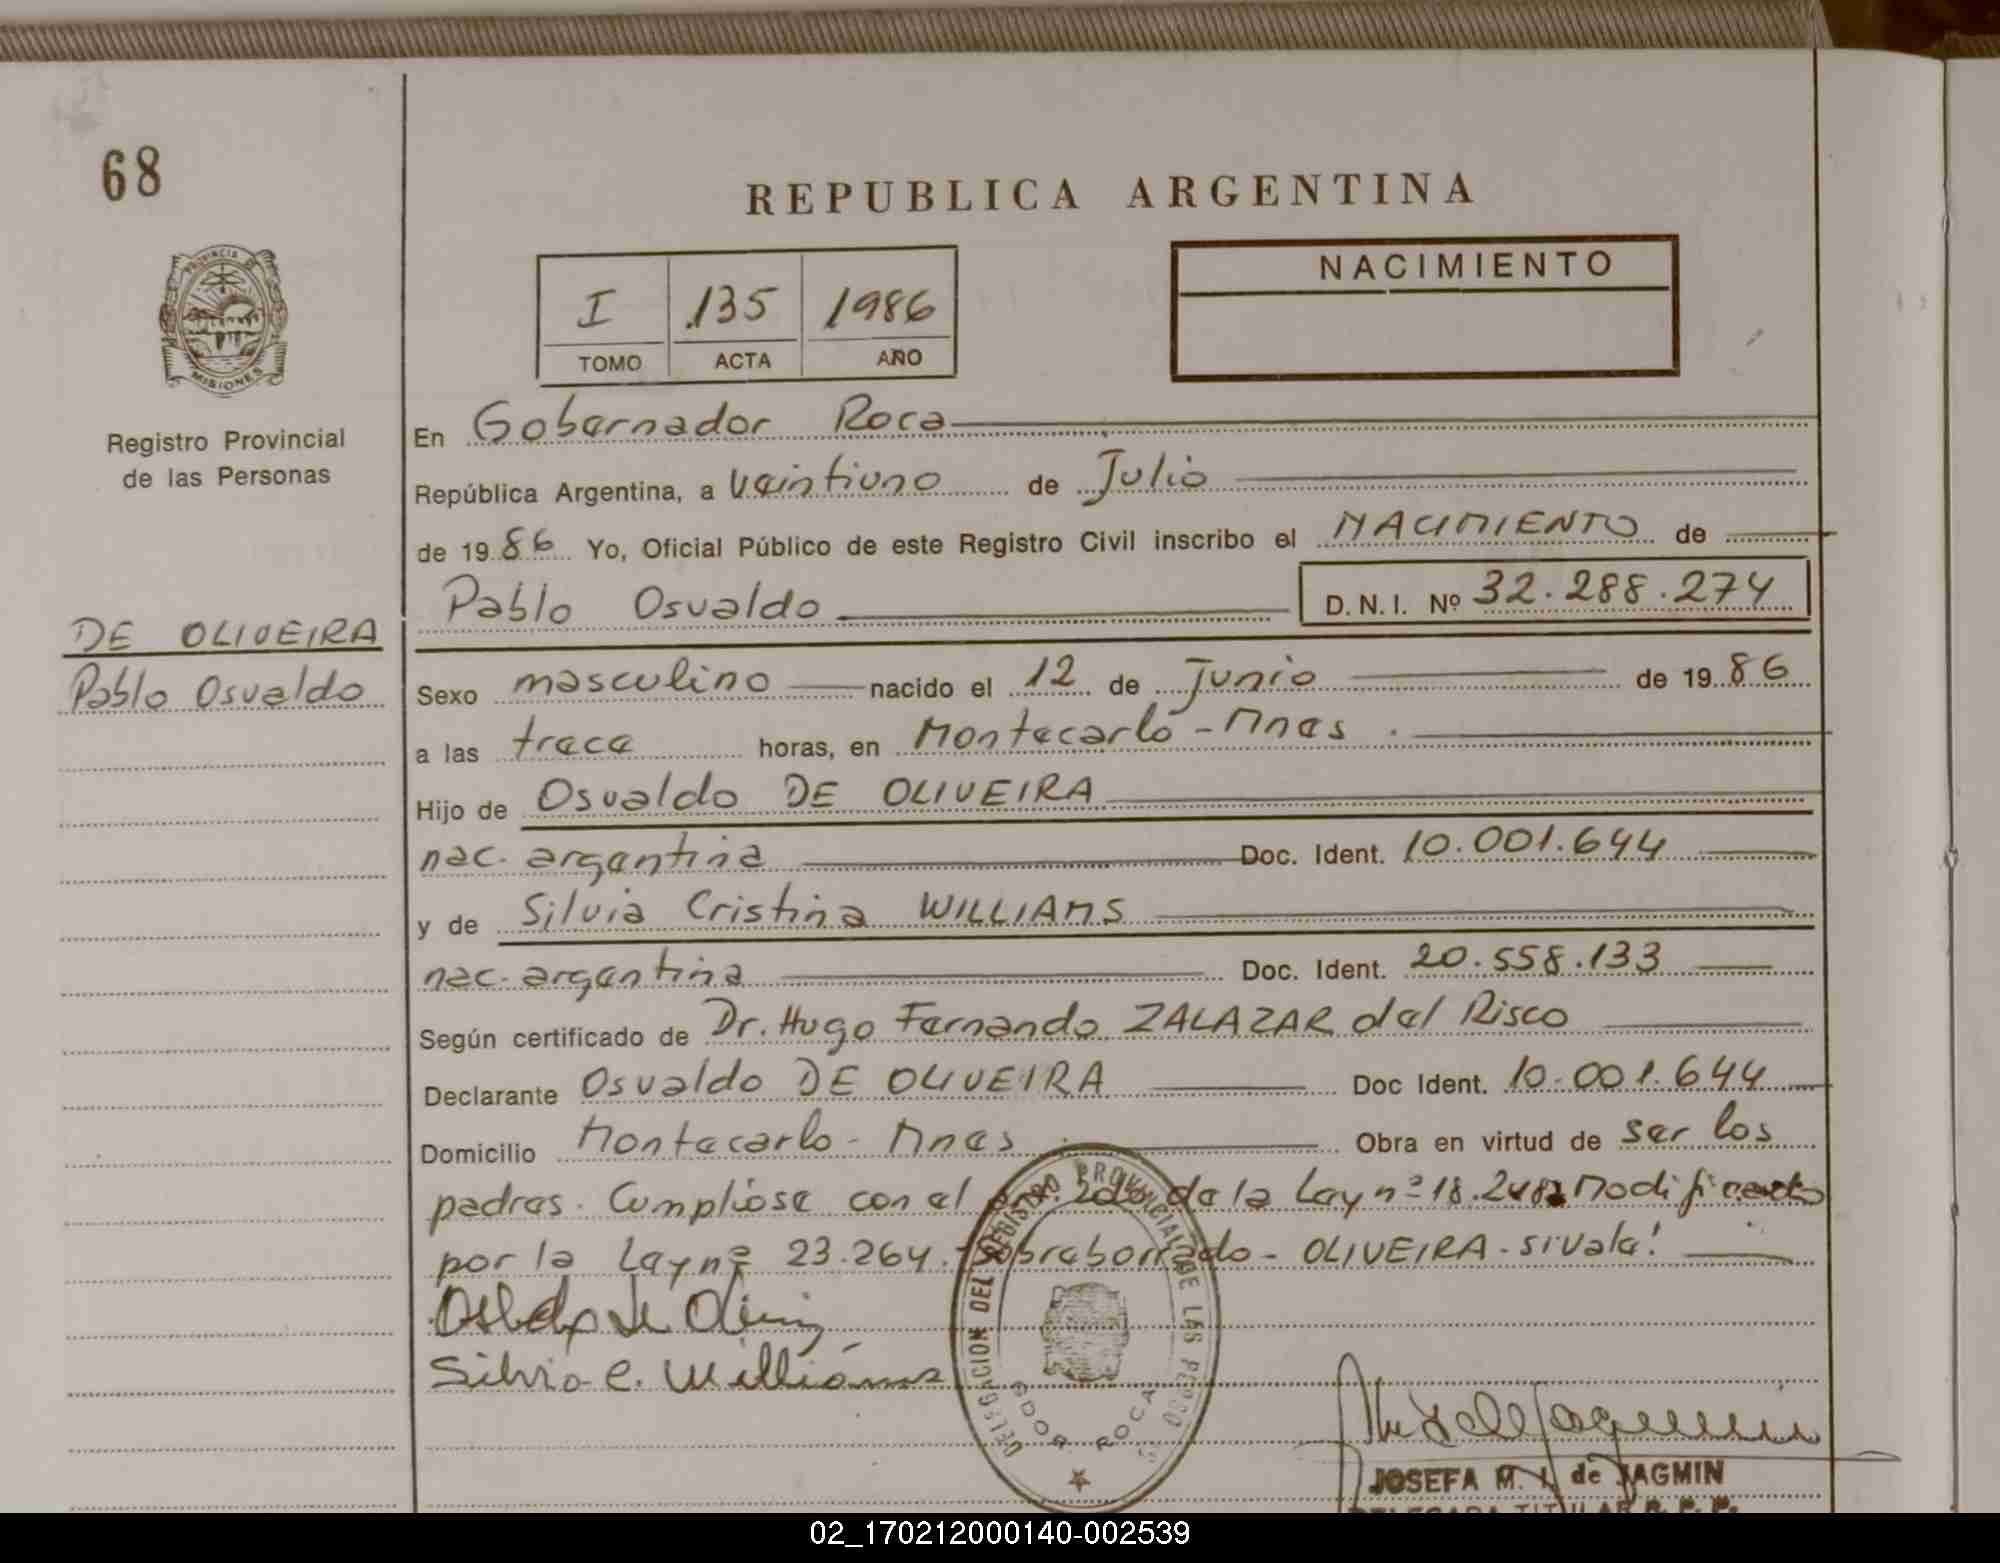 68
REPUBLICA ARGENTINA
PROVINCIA DE
MISIONES
Registro Provincial
de las Personas
I 135 1986
TOMO ACTA AÑO
NACIMIENTO
En Gobernador Roca
República Argentina, a veintiuno de Julio
de 1986 Yo, Oficial Público de este Registro Civil inscribo el NACIMIENTO de
Pablo Osvaldo D. N. I. Nº 32.288.274
DE OLIVEIRA
Pablo Osvaldo
Sexo masculino nacido el 12 de Junio de 1986
a las trece horas, en Montecarlo - Mnes.
Hijo de Osvaldo DE OLIVEIRA
nac. argentina Doc. Ident. 10.001.644
y de Silvia Cristina WILLIAMS
nac. argentina Doc. Ident. 20.558.133
Según certificado de Dr. Hugo Fernando ZALAZAR del Risco
Declarante Osvaldo DE OLIVEIRA Doc Ident. 10.001.644
Domicilio Montecarlo - Mnes. Obra en virtud de ser los
padres. Cumplióse con el de la Ley nº 18.248 Modificado
por la Ley nº 23.264. Sobreborrado - OLIVEIRA - si vale!
Silvia C. Williams
DELEGACION DEL REGISTRO PROVINCIAL DE LAS PERSO
GDOR. ROCA
JOSEFA M. I. de JAGMIN
DELEGADA TITULAR R. P. P.
02_170212000140-002539